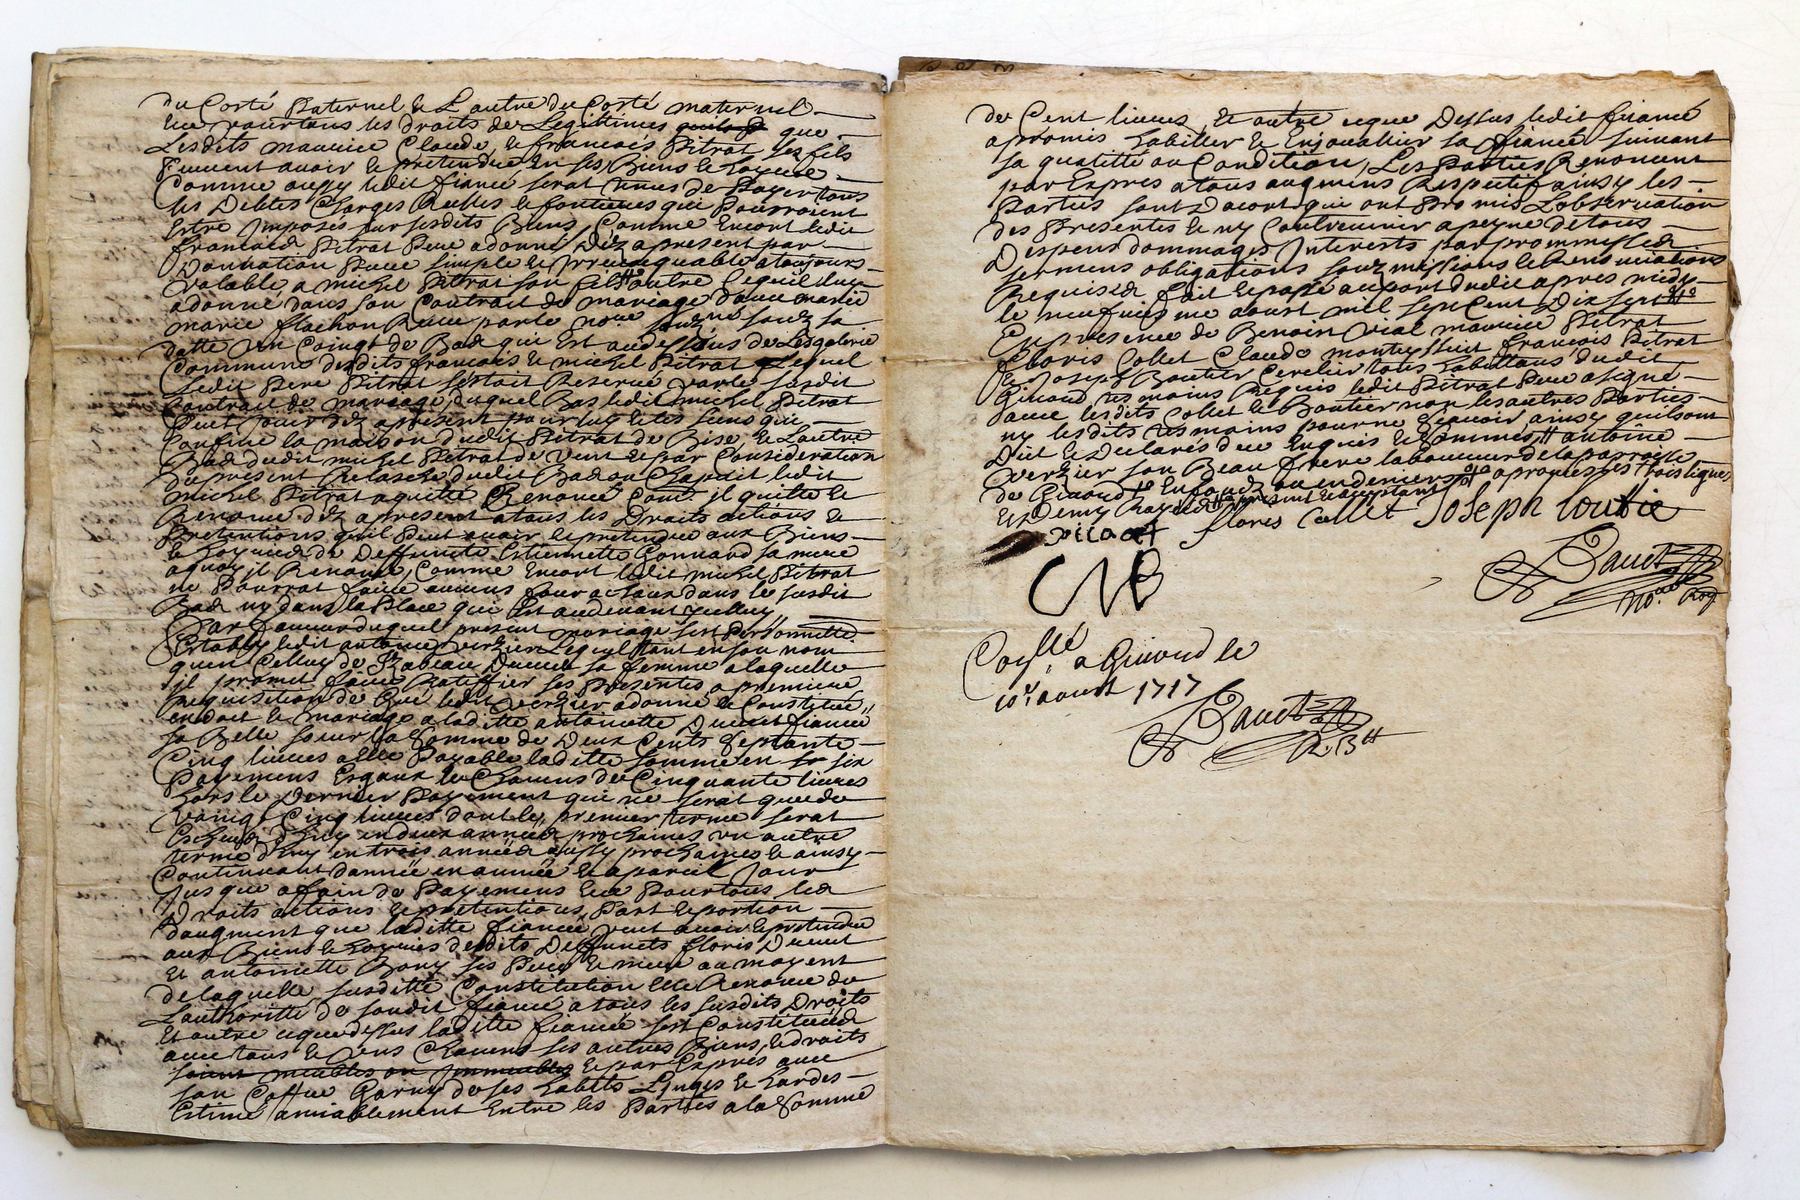 du Costé Paternel & L'autre du Costé maternel
Ece pourtous les droits de Legittimes que
Lesdits maurice Claude, & francois Pitrat ses fils
Peuvent avoir & pretendre En ses Biens & hoyerie
Comme aussy ledit fiancé serat tenus de Payer tous
les Debtes Charges Reelles & fontieres qui Pourroient
Estre Imposés sur sesdits Biens, Comme Encort ledit
francois Pitrat Pere adonné Déz apresent par
Donnation Pure simple & Irrevoquable atoujours
valable a michel Pitrat son fils outre ce quil luy
adonné dans son Contrait de mariage d'avec marie
marie flachon Receu par le no.re souz.né souz sa
datte Un Coingt de Bas qui Est audessous de Lesgalerie
Commune desdits francois & michel Pitrat Lequel
ledit Pere Pitrat s'estoit Reservé par le susdit
Contrait de mariage, duquel Bas ledit michel Pitrat
Jouit pour déz apresent pour luy & les siens qui
Confine la maison dudit Pitrat de Bise, & L'autre
Bas dudit michel Pitrat de vent & par Consideration
du present Relasché dudit Bas ou Chapait ledit
michel Pitrat aquitté & Renoncé Com.e il quitte &
Renonce déz apresent atous les Droits actions &
Pretentions quil Peut avoir & pretendre aux Biens
& hoyries de Deffuncte Estiennette Gonnard sa mere
aquoy il Renonce, Comme Encort ledit michel Pitrat
ne Pourrat faire aucuns four a chaux dans le susdit
Bas ny dans la Place qui Est audevant Jcelluy
Par faveur duquel present mariage sest Personnelle
Estably ledit antoine verzier Lequel tant en son nom
quen Celluy de Jzabeau Ducret sa femme a laquelle
il promet faire Ratiffier les Presentes a premiere
Requisition de Gré ledit verzier adonné & Constitué
en dot & mariage a laditte antoinette Ducret fiancée
sa Belle soeur La Somme de Deux Cents septante
Cinq livres Elle Payable laditte somme en six
Payemens Esgaux & Chacuns de Cinquante livres
hors le Dernier Payement qui ne serat que de
vaingt Cinq livres dont le premier terme serat
Escheud d'huy en deux années prochaines un autre
terme d'huy en trois années aussy prochaines & ainsy
Continuant dannée en année & a pareil Jour
Jusque a fain de Payemens Ece Pourtous les
Droits actions & pretentions, Part & portion
daugment que laditte fiancée peut avoir & pretendre
aux Biens & hoyries desdits Deffuncts floris Ducret
& antoinette Bony ses Pere & mere au moyent
de laquelle susditte Constitution elle Renonce de
L'authoritté de soudit fiancé a tous les susdits Droits
Et outre ceque dessus laditte fiancée sest Constituée
avec tous & Uns Chacuns ses autres Biens & droits
soient meubles ou Jmmeubles & par Exprés avec
son Coffre Garny de ses habits Linges & hardes
Estimé amiablement Entre les Parties a la Somme
de Cent livres Et outre ceque Dessus ledit fiancé
apromis habiller & Enjouallier sa fiancée suivant
sa qualitté ou Condition, Les Parties Renoncent
par Exprés a tous augmens Respectif ainsy les
Parties sont Dacort qui ont Promis L'observation
des Presentes & ny Contrevenir a peyne de tous
Despens dommages Interests par prommesses
sermens obligations souzmissions & Renonciations
Requises fait & passé au port dudit apres midy
le neufviesme aoust mil sept Cent Dix sept
En presence de Benoist vial maurice Pitrat
floris Collet Claude montessuit francois Pitrat
& Joseph Boutier Cerclier tous habitans dudit
Givord tesmoins Requis ledit Pitrat Pere a signé
avec lesdits Collet & Boutier non les autres Parties
ny lesdits tesmoins pour ne scavoir ainsy quils ont
Dit & Declarés deue Enquis & sommés, antoine
verzier son Beau frere laboureur de la paroisse
de Givord
present & acceptant
floris Collet Joseph Boutie
Pitrat
Bauet
no.re Roy
Conllé, a Givord le
10.e aoust 1717
Bauet